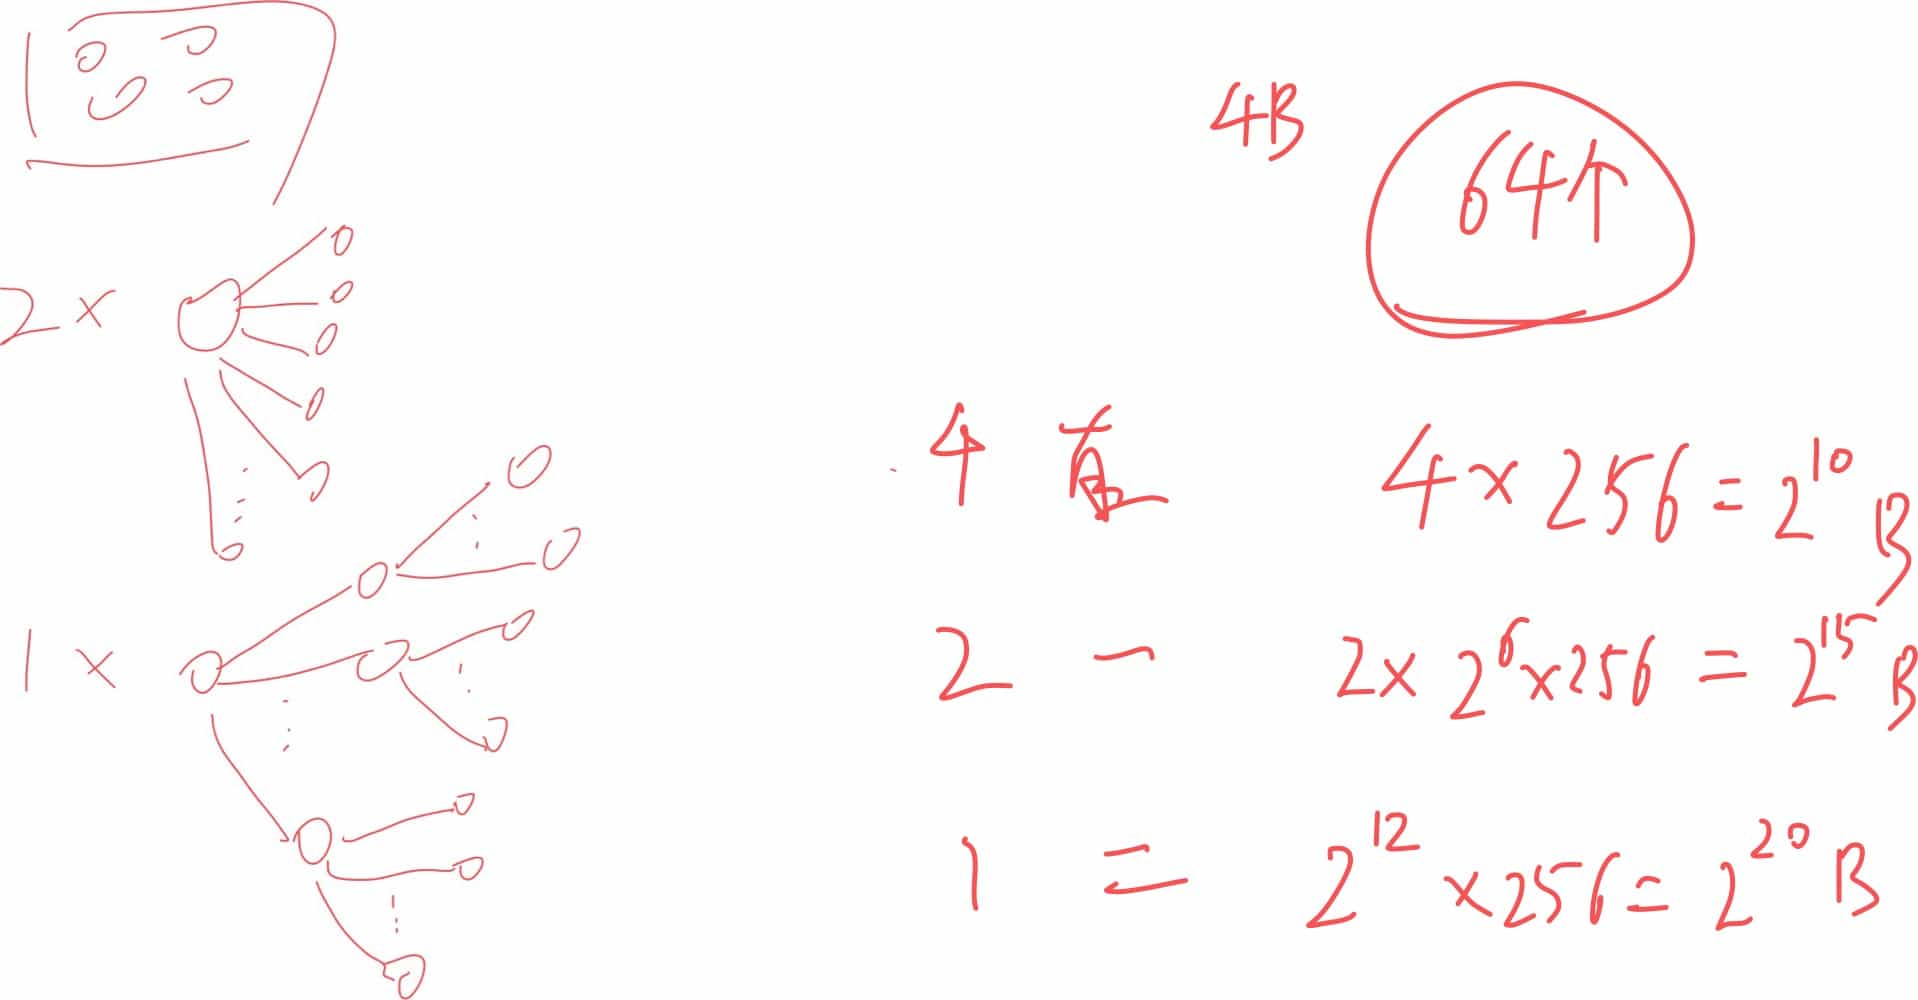 4B 64个
2×
4 直 4×256=2^10 B
2 一 2×2^6×256=2^15 B
1×
1 二 2^12×256=2^20 B